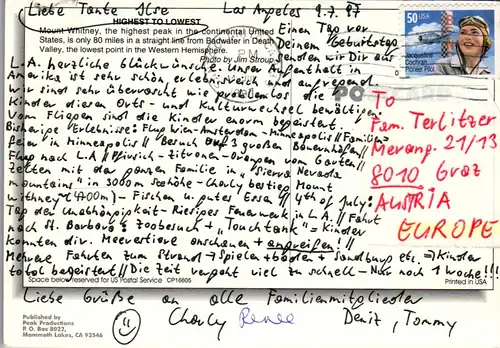 Liebe Tante Ilse Los Angeles 9.7.97
HIGHEST TO LOWEST
Mount Whitney, the highest peak in the continental United
States, is only 80 miles in a straight line from Badwater in Death
Valley, the lowest point in the Western Hemisphere.
Photo by Jim Stroup
Einen Tag vor
Deinem Geburtstag
senden wir Dir aus
L.A. herzliche Glückwünsche. Unser Aufenthalt in
Amerika ist sehr schön, erlebnisreich und aufregend.
Wir sind sehr überrascht wie problemlos die
Kinder diesen Orts- und Kulturwechsel bewältigen.
Vom Fliegen sind die Kinder enorm begeistert.
Bisherige Erlebnisse: Flug Wien-Amsterdam-Minneapolis // Familien-
feier in Minneapolis // Besuch auf 3 großen Bauernhöfen //
Flug nach L.A // Pfirsich-Zitronen-Orangen vom Garten //
Zelten mit der ganzen Familie in "Sierra Nevada
mountains" in 3000m Seehöhe - Charly bestieg Mount
Withney (4400m) - Fischen u. gutes Essen // 4th of July:
Tag der Unabhängigkeit - Riesiges Feuerwerk in L.A. // Fahrt
nach St. Barbara Zoobesuch + "Touchtank" = Kinder
konnten div. Meerestiere anschauen + angreifen! //
Mehrere Fahrten zum Strand → Spielen + baden + Sandburg etc. ⇒ Kinder
total begeistert // Die Zeit vergeht viel zu schnell - Nur noch 1 Woche!!!
Space below reserved for US Postal Service CP16805 Printed in USA
Liebe Grüße an alle Familienmitglieder
Charly Renee Deniz, Tommy
Published by
Peak Productions
P.O. Box 8022,
Mammoth Lakes, CA 93546
50 USA
Jacqueline
Cochran
Pioneer Pilot
PM
TO
Fam. Terlitzer
Merang. 21/13
8010 Graz
AUSTRIA
EUROPE